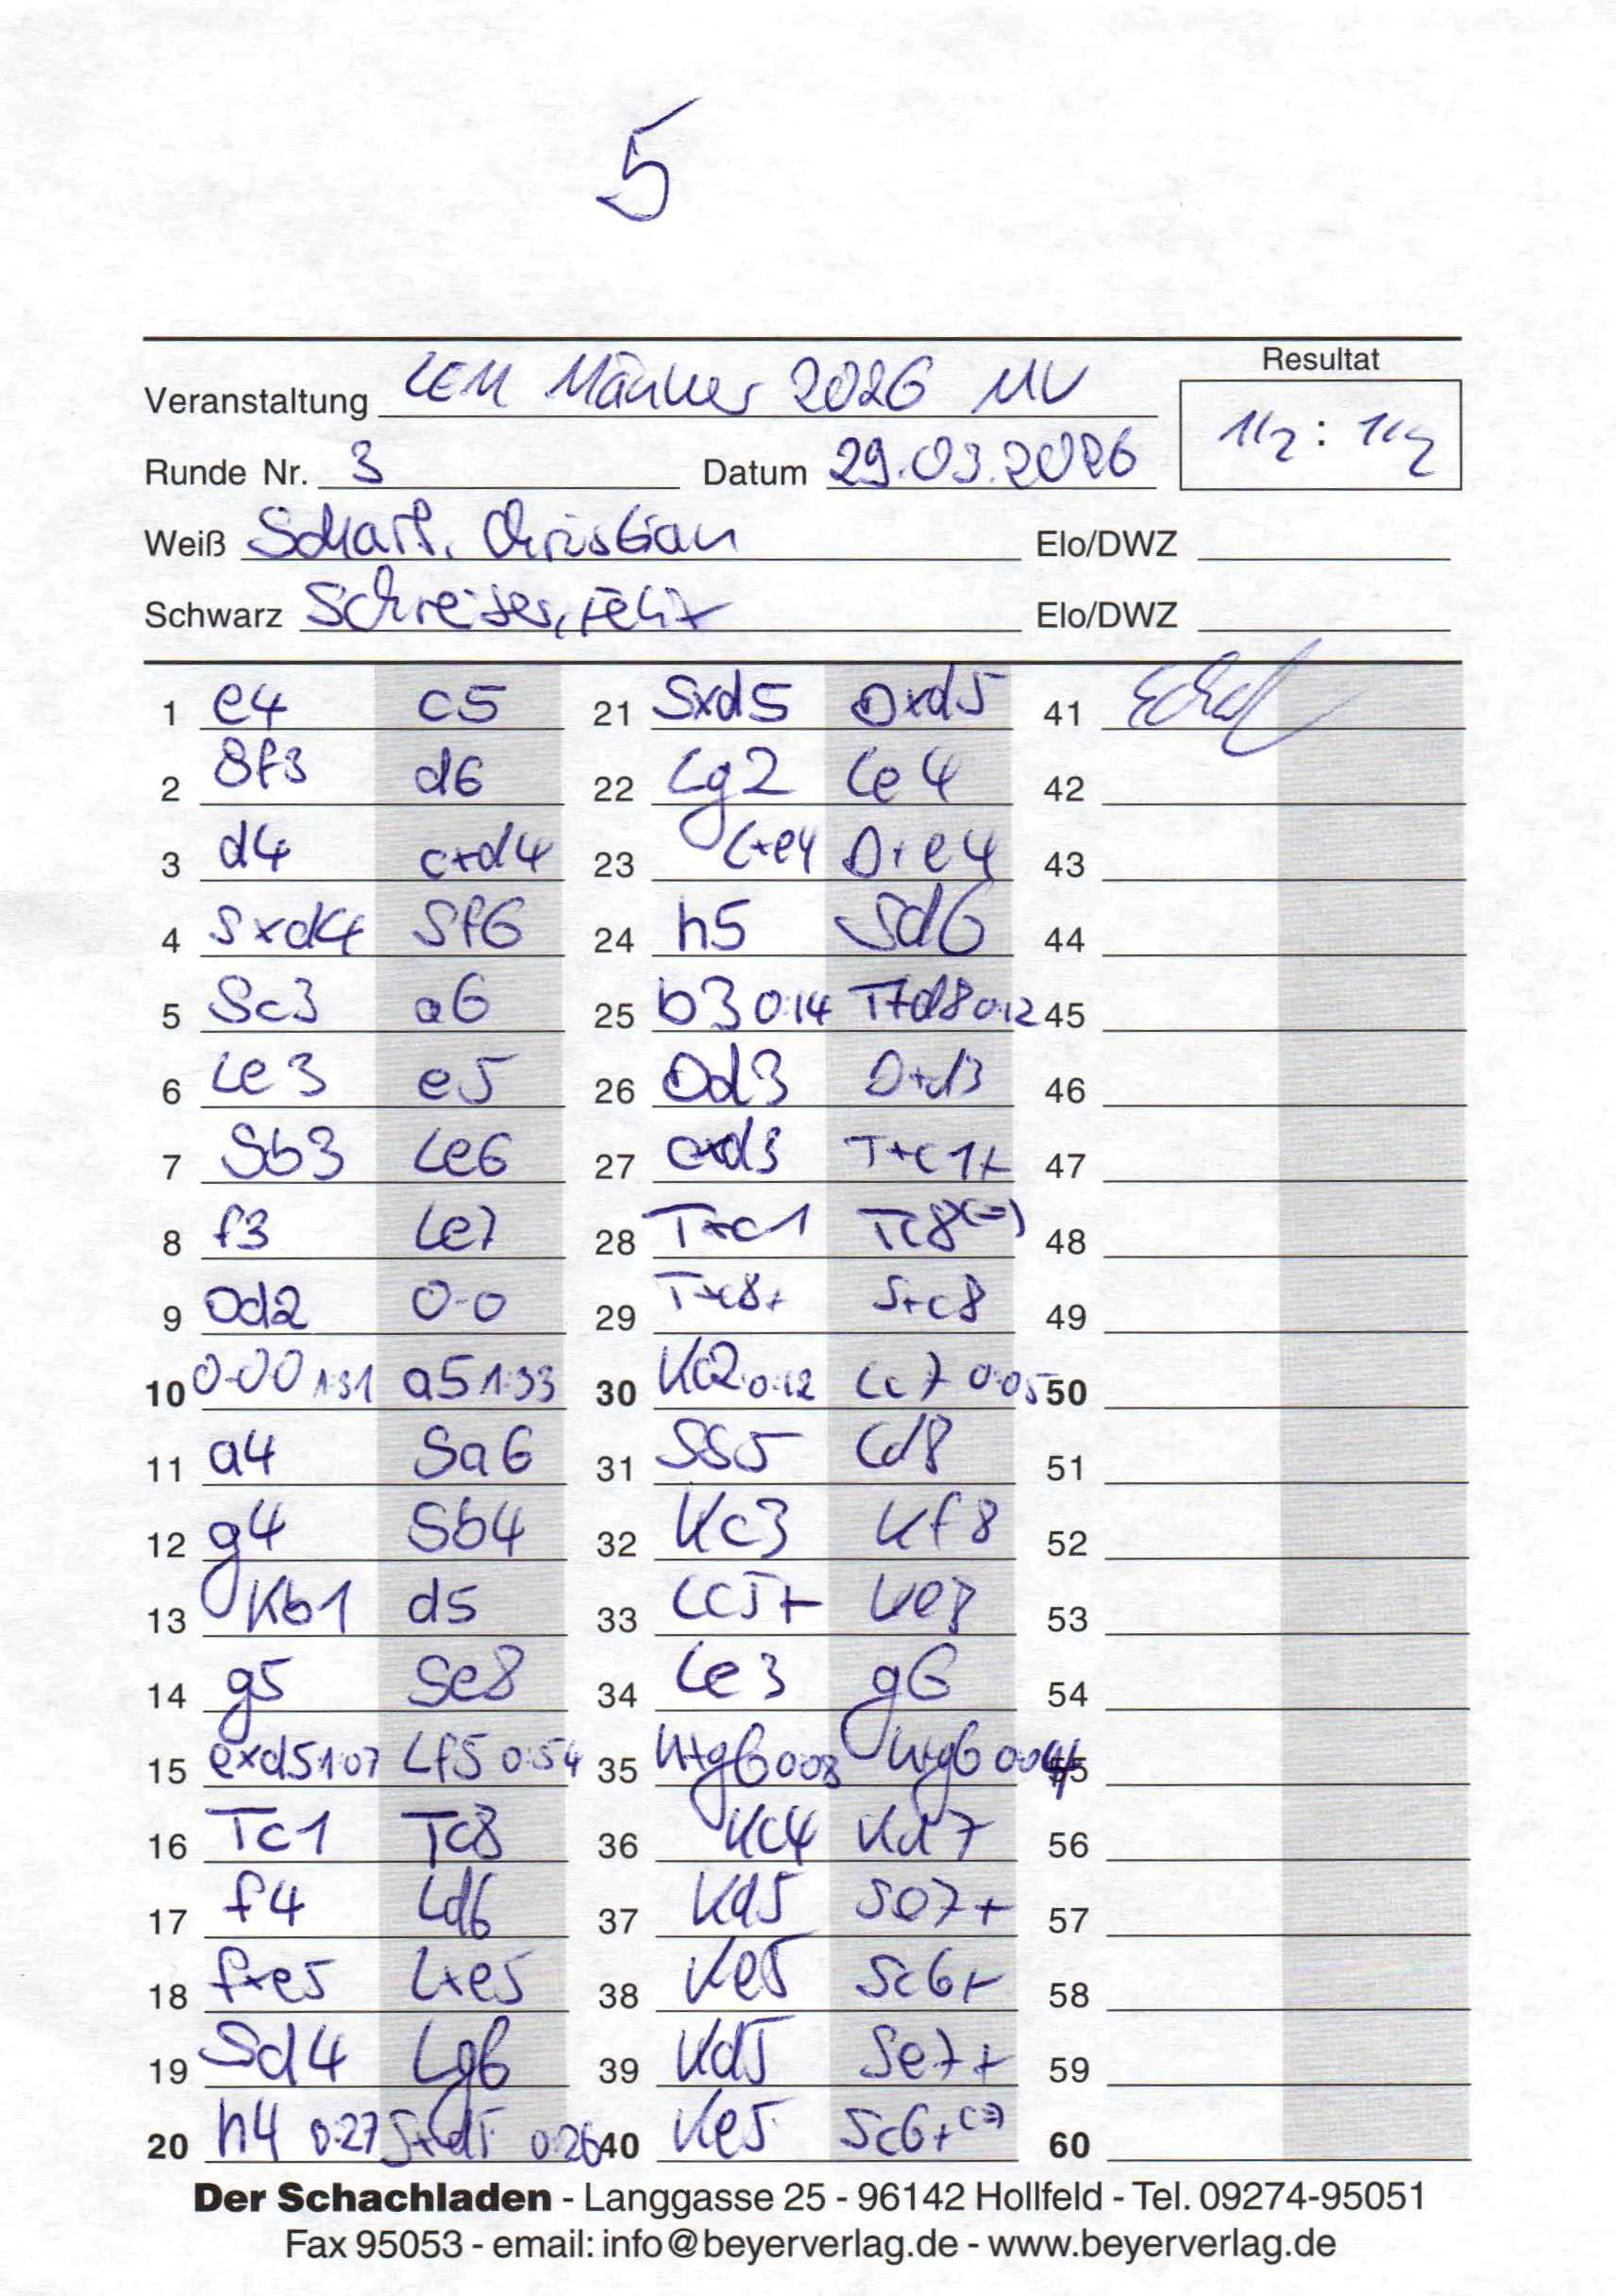 5
Resultat
Veranstaltung LEM Männer 2026 MV
1/2 : 1/2
Runde Nr. 3 Datum 29.03.2026
Weiß Christian Elo/DWZ
Schwarz Felix Elo/DWZ
1 e4 c5 21 Sxd5 Dxd5 41
2 Sf3 d6 22 Lg2 Le4 42
3 d4 cxd4 23 Lxe4 Dxe4 43
4 Sxd4 Sf6 24 h5 Sd6 44
5 Sc3 a6 25 b3 0:14 Tfd8 0:12 45
6 Le3 e5 26 Dd3 Dxd3 46
7 Sb3 Le6 27 cxd3 Txc1+ 47
8 f3 Le7 28 Txc1 Tc8 (=) 48
9 Dd2 0-0 29 Txc8+ Sxc8 49
10 0-00 1:31 a5 1:33 30 Kc2 0:12 Lc7 0:05 50
11 a4 Sa6 31 Sb5 Ld8 51
12 g4 Sb4 32 Kc3 Kf8 52
13 Kb1 d5 33 Lc5+ Ke8 53
14 g5 Se8 34 Le3 g6 54
15 exd5 1:07 Lf5 0:54 35 hxg6 0:08 hxg6 0:04 55
16 Tc1 Tc8 36 Kc4 Kd7 56
17 f4 Ld6 37 Kd5 Se7+ 57
18 fxe5 Lxe5 38 Ke5 Sc6+ 58
19 Sd4 Lg6 39 Kd5 Se7+ 59
20 h4 0:27 Sxd5 0:26 40 Ke5 Sc6+ (=) 60
Der Schachladen - Langgasse 25 - 96142 Hollfeld - Tel. 09274-95051
Fax 95053 - email: info@beyerverlag.de - www.beyerverlag.de